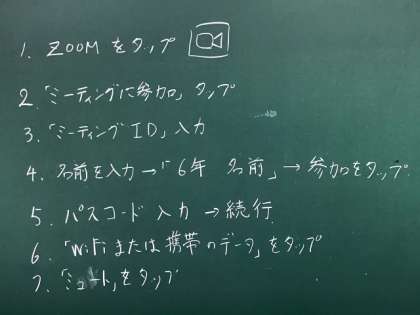 1. ZOOMをタップ
2.「ミーティングに参加」タップ
3.「ミーティングID」入力
4. 名前を入力→「6年 名前」→参加をタップ
5. パスコード入力→続行
6.「WiFiまたは携帯のデータ」をタップ
7.「ミュート」をタップ